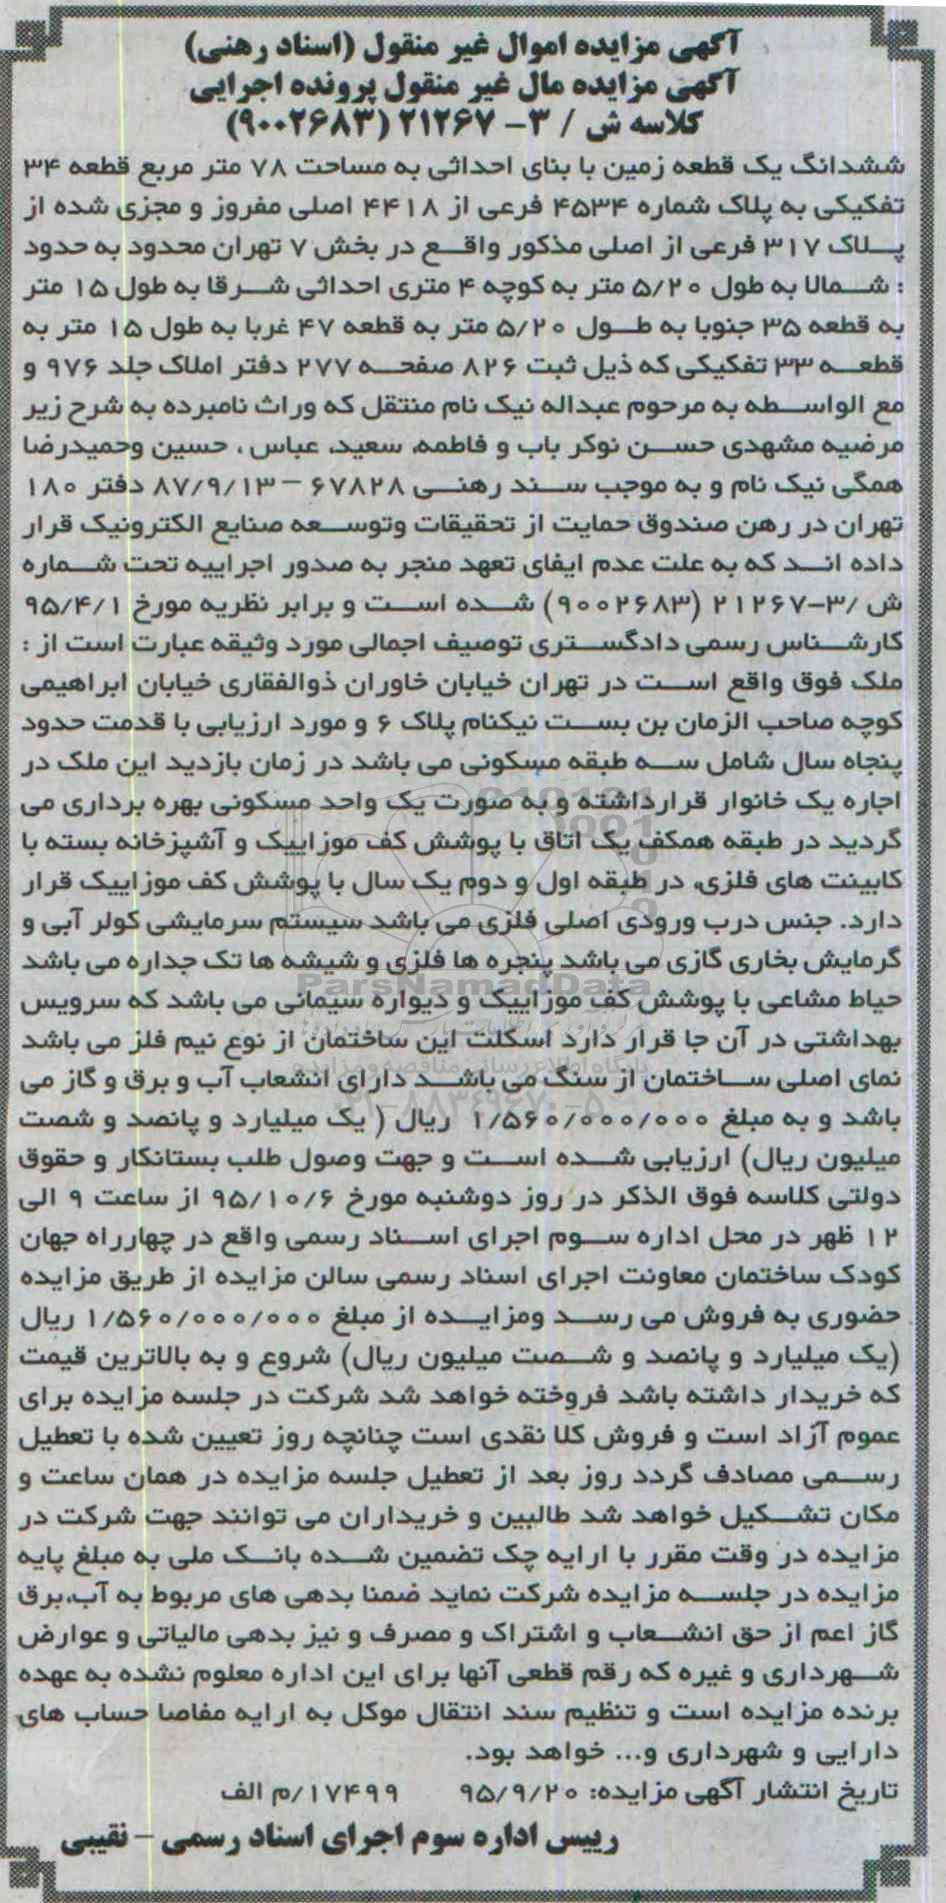 آگهی مزایده اموال غیر منقول (اسناد رهنی)
آگهی مزایده مال غیر منقول پرونده اجرایی
کلاسه ش / ۳- ۲۱۲۶۷ (۹۰۰۲۶۸۳)
ششدانگ یک قطعه زمین با بنای احداثی به مساحت ۷۸ متر مربع قطعه ۳۴
تفکیکی به پلاک شماره ۴۵۳۴ فرعی از ۴۴۱۸ اصلی مفروز و مجزی شده از
پلاک ۳۱۷ فرعی از اصلی مذکور واقع در بخش ۷ تهران محدود به حدود
: شمالا به طول ۵/۲۰ متر به کوچه ۴ متری احداثی شرقا به طول ۱۵ متر
به قطعه ۳۵ جنوبا به طول ۵/۲۰ متر به قطعه ۴۷ غربا به طول ۱۵ متر به
قطعه ۳۳ تفکیکی که ذیل ثبت ۸۲۶ صفحه ۲۷۷ دفتر املاک جلد ۹۷۶ و
مع الواسطه به مرحوم عبداله نیک نام منتقل که وراث نامبرده به شرح زیر
مرضیه مشهدی حسن نوکر باب و فاطمه، سعید، عباس ، حسین وحمیدرضا
همگی نیک نام و به موجب سند رهنی ۶۷۸۲۸ – ۸۷/۹/۱۳ دفتر ۱۸۰
تهران در رهن صندوق حمایت از تحقیقات وتوسعه صنایع الکترونیک قرار
داده اند که به علت عدم ایفای تعهد منجر به صدور اجراییه تحت شماره
ش /۳-۲۱۲۶۷ (۹۰۰۲۶۸۳) شده است و برابر نظریه مورخ ۹۵/۴/۱
کارشناس رسمی دادگستری توصیف اجمالی مورد وثیقه عبارت است از :
ملک فوق واقع است در تهران خیابان خاوران ذوالفقاری خیابان ابراهیمی
کوچه صاحب الزمان بن بست نیکنام پلاک ۶ و مورد ارزیابی با قدمت حدود
پنجاه سال شامل سه طبقه مسکونی می باشد در زمان بازدید این ملک در
اجاره یک خانوار قرارداشته و به صورت یک واحد مسکونی بهره برداری می
گردید در طبقه همکف یک اتاق با پوشش کف موزاییک و آشپزخانه بسته با
کابینت های فلزی، در طبقه اول و دوم یک سال با پوشش کف موزاییک قرار
دارد. جنس درب ورودی اصلی فلزی می باشد سیستم سرمایشی کولر آبی و
گرمایش بخاری گازی می باشد پنجره ها فلزی و شیشه ها تک جداره می باشد
ParsNamadData
حیاط مشاعی با پوشش کف موزاییک و دیواره سیمانی می باشد که سرویس
بهداشتی در آن جا قرار دارد اسکلت این ساختمان از نوع نیم فلز می باشد
پایگاه اطلاع رسانی مناقصه و مزایده
نمای اصلی ساختمان از سنگ می باشد دارای انشعاب آب و برق و گاز می
۰۲۱-۸۸۳۴۹۶۷۰-۵
باشد و به مبلغ ۱/۵۶۰/۰۰۰/۰۰۰ ریال ( یک میلیارد و پانصد و شصت
میلیون ریال) ارزیابی شده است و جهت وصول طلب بستانکار و حقوق
دولتی کلاسه فوق الذکر در روز دوشنبه مورخ ۹۵/۱۰/۶ از ساعت ۹ الی
۱۲ ظهر در محل اداره سوم اجرای اسناد رسمی واقع در چهارراه جهان
کودک ساختمان معاونت اجرای اسناد رسمی سالن مزایده از طریق مزایده
حضوری به فروش می رسد ومزایده از مبلغ ۱/۵۶۰/۰۰۰/۰۰۰ ریال
(یک میلیارد و پانصد و شصت میلیون ریال) شروع و به بالاترین قیمت
که خریدار داشته باشد فروخته خواهد شد شرکت در جلسه مزایده برای
عموم آزاد است و فروش کلا نقدی است چنانچه روز تعیین شده با تعطیل
رسمی مصادف گردد روز بعد از تعطیل جلسه مزایده در همان ساعت و
مکان تشکیل خواهد شد طالبین و خریداران می توانند جهت شرکت در
مزایده در وقت مقرر با ارایه چک تضمین شده بانک ملی به مبلغ پایه
مزایده در جلسه مزایده شرکت نماید ضمنا بدهی های مربوط به آب،برق
گاز اعم از حق انشعاب و اشتراک و مصرف و نیز بدهی مالیاتی و عوارض
شهرداری و غیره که رقم قطعی آنها برای این اداره معلوم نشده به عهده
برنده مزایده است و تنظیم سند انتقال موکل به ارایه مفاصا حساب های
دارایی و شهرداری و... خواهد بود.
تاریخ انتشار آگهی مزایده: ۹۵/۹/۲۰ ۱۷۴۹۹/م الف
رییس اداره سوم اجرای اسناد رسمی – نقیبی